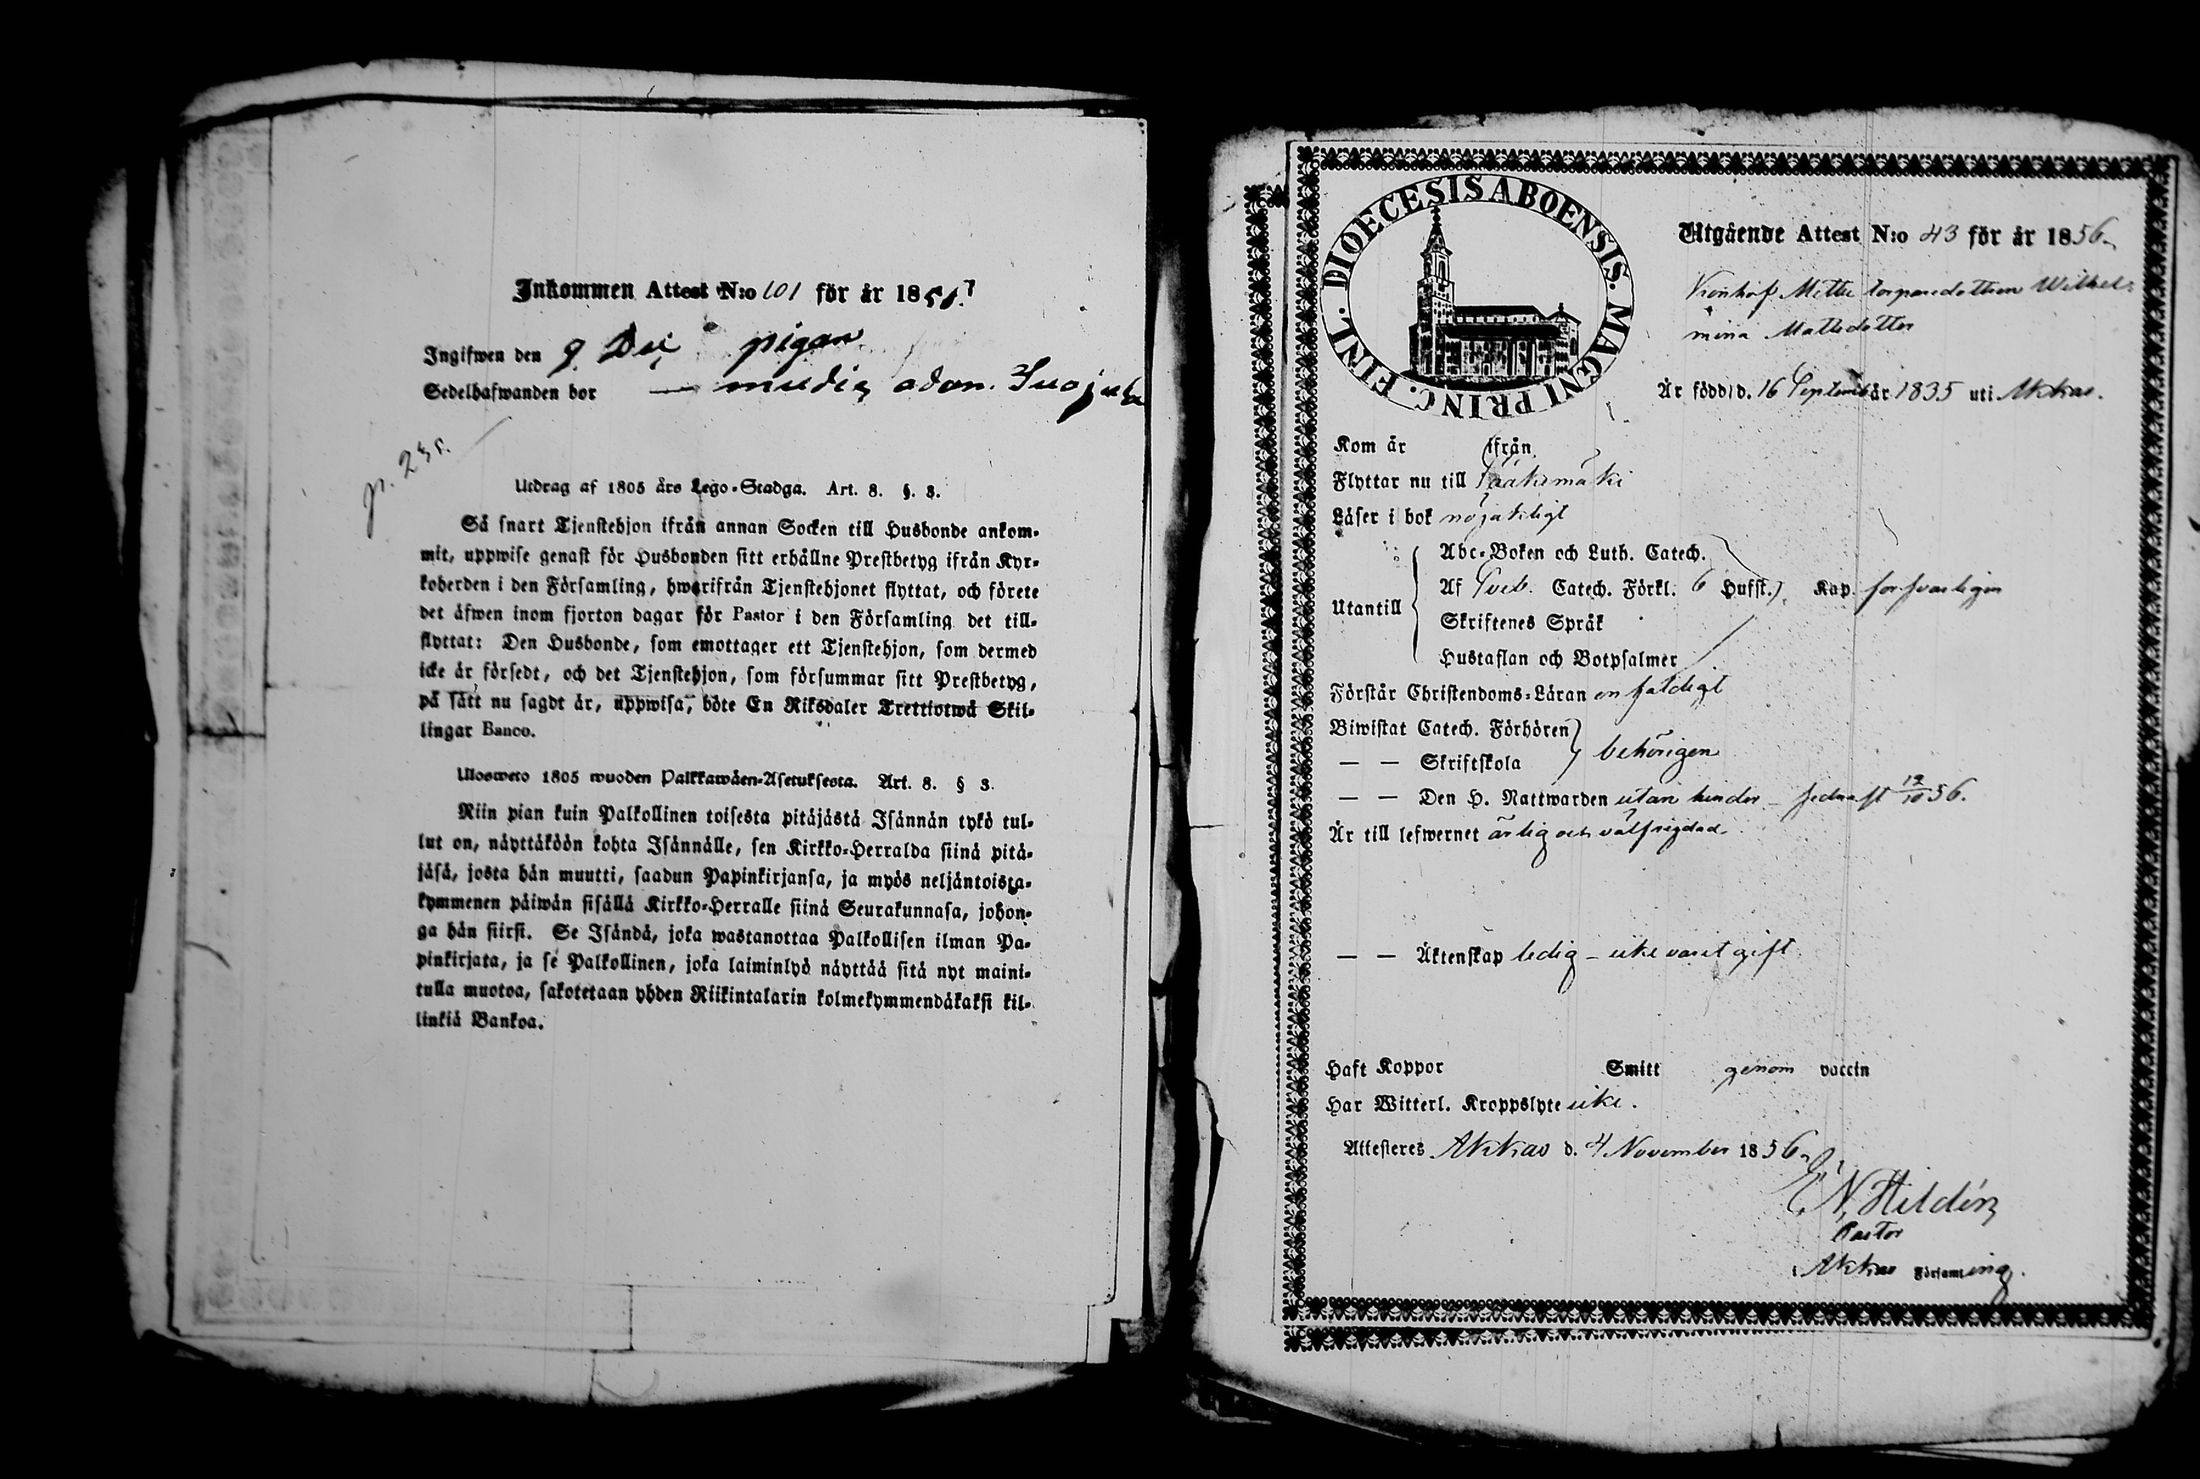 Inkommen Attest N:o 101 för år 185
Ingifwen den 9 pigan
Sedelhafwanden bor
p. 235.
Utdrag af 1805 års Lego-Stadga. Art. 8. §. 3.
Så snart Tjenstehjon ifrån annan Socken till Husbonde ankom-
mit, uppwise genast för Husbonden sitt erhållne Prestbetyg ifrån Kyr-
koherden i den Församling, hwarifrån Tjenstehjonet flyttat, och förete
det äfwen inom fjorton dagar för Pastor i den Församling det till-
flyttat: Den Husbonde, som emottager ett Tjenstehjon, som dermed
icke är försedt, och det Tjenstehjon, som försummar sitt Prestbetyg,
på sätt nu sagdt är, uppwisa, böte En Riksdaler Trettiotwå Skil-
lingar Banco.
Uloswето 1805 wuoden Palkkawäen-Asetuksesta. Art. 8. § 3.
Niin pian kuin Palkollinen toisesta pitäjästä Isännän tykö tul-
lut on, näyttäköön kohta Isännälle, sen Kirkko-Herralda siinä pitä-
jäsä, josta hän muutti, saadun Papinkirjansa, ja myös neljäntoista-
kymmenen päiwän sisällä Kirkko-Herralle siinä Seurakunnasa, johon-
ga hän siirsi. Se Isändä, joka wastanottaa Palkollisen ilman Pa-
pinkirjata, ja se Palkollinen, joka laiminlyö näyttää sitä nyt maini-
tulla muotoa, sakotetaan yhden Riikintalarin kolmekymmendäkaksi kil-
linkiä Bankoa.
DIOECESIS ABOENSIS. MAGNI PRINC. FINL.
Utgående Attest N:o 43 för år 1856
torparedottren Wilhel-
mina Mattsdotter
Är född d. 16 September år 1835 uti Akkas.
Kom år ifrån
Flyttar nu till Sääksmäki
Läser i bok nöjaktligt
Abc-Boken och Luth. Catech.
Af Sveb. Catech. Förkl. 6 Hufst. Kap. försvarligen
Utantill
Skriftenes Språk
Hustaflan och Botpsalmer
Förstår Christendoms-Läran enfaldigt
Biwistat Catech. Förhören
— — Skriftskola behörigen
— — Den H. Nattwarden utan hinder – sednast 19/10 56.
Är till lefwernet ärlig och välfrejdad
— — Äktenskap ledig – icke varit gift
Haft Koppor Smitt genom vaccin
Har Witterl. Kroppslyte icke.
Attesteres Akkas d. 4 November 1856
E N Hildén
Pastor
i Akkas Församling.